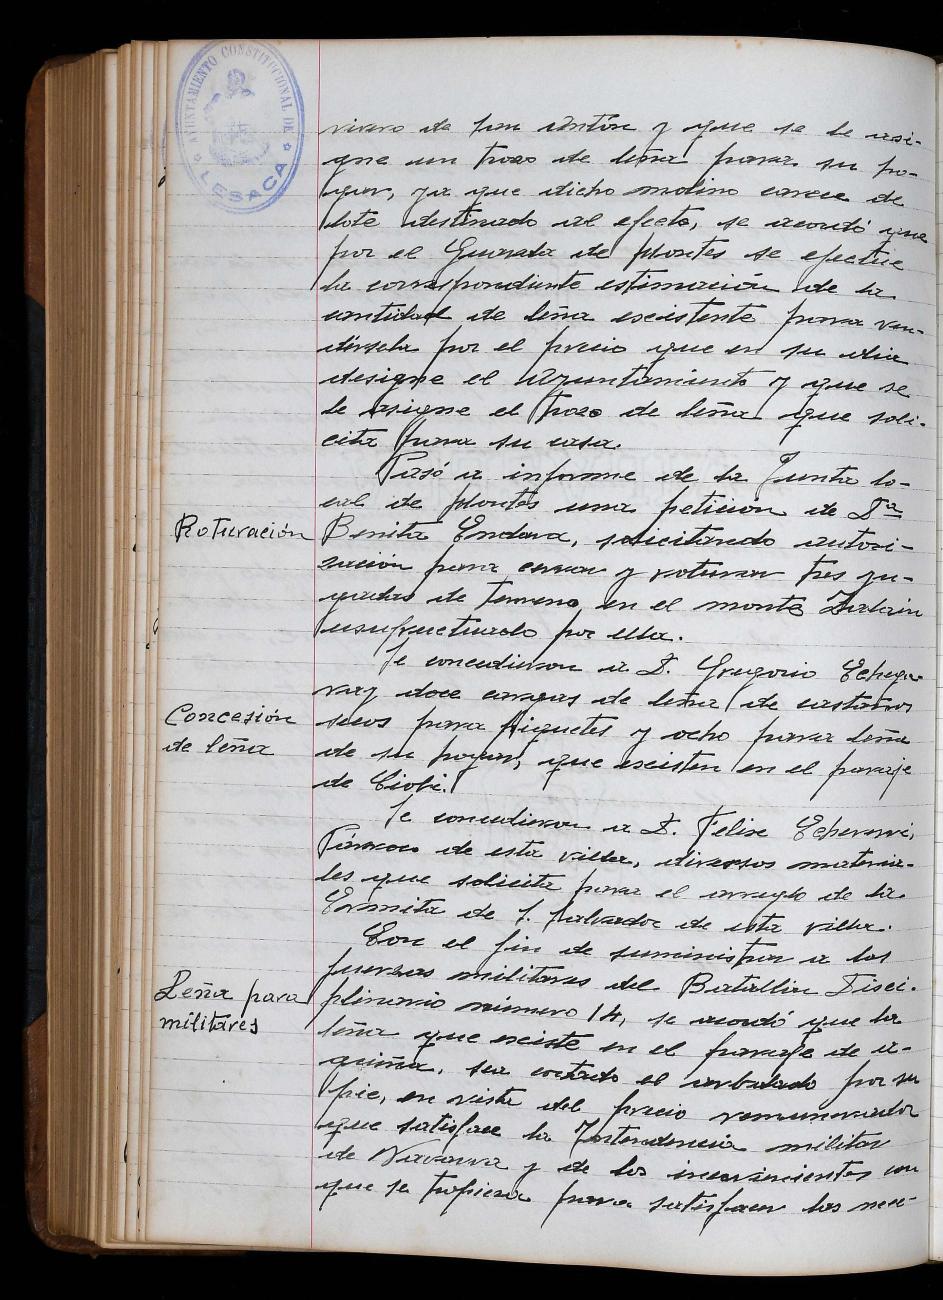 AYUNTAMIENTO CONSTITUCIONAL DE
LESACA
vivero de San Antón y que se le asi-
gne un trozo de leña para su ho-
gar, ya que dicho molino carece de
lote destinado al efecto, se acordó que
por el Guarda de Montes se efectúe
la correspondiente estimación de la
cantidad de leña existente para ven-
dérsela por el precio que en su día
designe el Ayuntamiento y que se
le asigne el trozo de leña que soli-
cita para su casa.
Pasó a informe de la Junta lo-
cal de Montes una peticion de Dª
Roturación
Benita Endara, solicitando autori-
zación para cerrar y roturar tres yu-
gadas de terreno en el monte
usufructuado por ella.
Se concedieron a D. Gregorio Echega-
ray doce cargas de leña de castaños
Concesión
de leña
secos para piquetes y ocho para leña
de su hogar, que existen en el paraje
de
Se concedieron a D. Felix Echeverri,
Párroco de esta villa, diversos materia-
les que solicita para el arreglo de la
Ermita de S. Salvador de esta villa.
Con el fin de suministrar a las
fuerzas militares del Batallón Disci-
Leña para
militares
plinario número 14, se acordó que la
leña que existe en el paraje de
sea cortado el arbolado por su
pie, en vista del precio remunerador
que satisface la Intendencia militar
de Navarra y de los inconvenientes con
que se tropieza para satisfacer las nece-